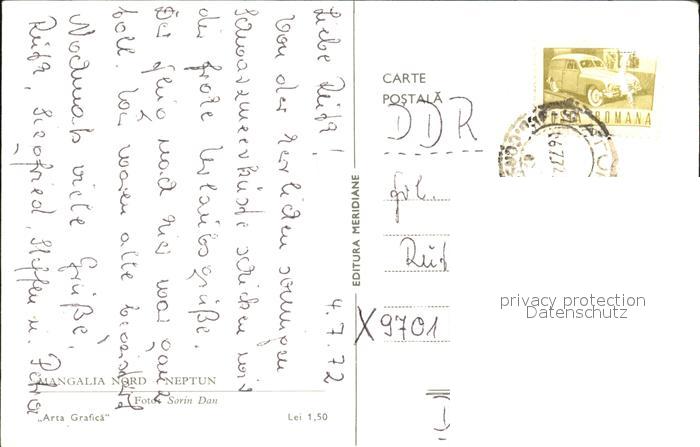 4.7.72
Liebe Ruth!
Von der herrlichen sonnigen
Schwarzmeerküste schicken wir
dir frohe Urlaubsgrüße.
Der Flug nach hier war ganz
toll. Wir waren alle begeistert
Nochmals viele Grüße,
Ruth, Siegfried, Steffen u. Petra
MANGALIA NORD - NEPTUN
Foto: Sorin Dan
„Arta Grafică"
Lei 1,50
EDITURA MERIDIANE
CARTE
POȘTALĂ
DDR
Frl.
Ruth
X9701
ROMANA
privacy protection
Datenschutz